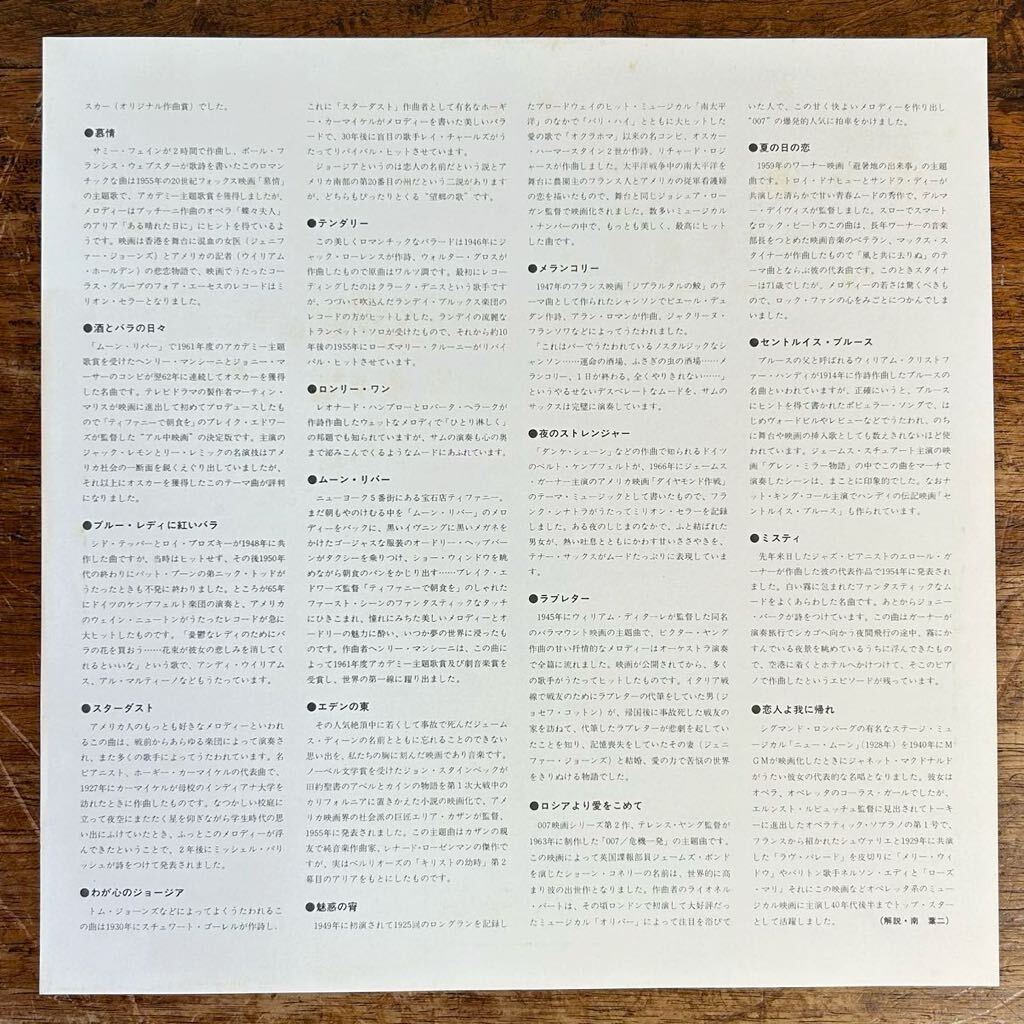 スカー(オリジナル作曲賞)でした。
●慕情
サミー・フェインが2時間で作曲し、ポール・フ
ランシス・ウェブスターが歌詩を書いたこのロマン
チックな曲は1955年の20世紀フォックス映画「慕情」
の主題歌で、アカデミー主題歌賞を獲得しましたが、
メロディーはプッチーニ作曲のオペラ「蝶々夫人」
のアリア「ある晴れた日に」にヒントを得ているよ
うです。映画は香港を舞台に混血の女医(ジェニフ
ァー・ジョーンズ)とアメリカの記者(ウイリアム
・ホールデン)の悲恋物語で、映画でうたったコー
ラス・グループのフォア・エーセスのレコードはミ
リオン・セラーとなりました。
●酒とバラの日々
「ムーン・リバー」で1961年度のアカデミー主題
歌賞を受けたヘンリー・マンシーニとジョニー・マ
ーサーのコンビが翌62年に連続してオスカーを獲得
した名曲です。テレビドラマの製作者マーティン・
マリスが映画に進出して初めてプロデュースしたも
ので「ティファニーで朝食を」のブレイク・エドワー
ズが監督した“アル中映画”の決定版です。主演の
ジャック・レモンとリー・レミックの名演技はアメ
リカ社会の一断面を鋭くえぐり出していましたが、
それ以上にオスカーを獲得したこのテーマ曲が評判
になりました。
●ブルー・レディに紅いバラ
シド・テッパーとロイ・ブロズキーが1948年に共
作した曲ですが、当時はヒットせず、その後1950年
代の終わりにパット・ブーンの弟ニック・トッドが
うたったときも不発に終わりました。ところが65年
にドイツのケンプフェルト楽団の演奏と、アメリカ
のウェイン・ニュートンがうたったレコードが急に
大ヒットしたものです。「憂鬱なレディのためにバ
ラの花を買おう……花束が彼女の悲しみを消してく
れるといいな」という歌で、アンディ・ウイリアム
ス、アル・マルティーノなどもうたっています。
●スターダスト
アメリカ人のもっとも好きなメロディーといわれ
るこの曲は、戦前からあらゆる楽団によって演奏さ
れ、また多くの歌手によってうたわれています。名
ピアニスト、ホーギー・カーマイケルの代表曲で、
1927年にカーマイケルが母校のインディアナ大学を
訪れたときに作曲したものです。なつかしい校庭に
立って夜空にまたたく星を仰ぎながら学生時代の思
い出にふけっていたとき、ふっとこのメロディーが浮
んできたということで、2年後にミッシェル・パリ
ッシュが詩をつけて発表されました。
●わが心のジョージア
トム・ジョーンズなどによってよくうたわれるこ
の曲は1930年にスチュワート・ゴーレルが作詩し、
これに「スターダスト」作曲者として有名なホーギ
ー・カーマイケルがメロディーを書いた美しいバラ
ードで、30年後に盲目の歌手レイ・チャールズがう
たってリバイバル・ヒットさせています。
ジョージアというのは恋人の名前だという説とア
メリカ南部の第20番目の州だという二説があります
が、どちらもぴったりとくる“望郷の歌”です。
●テンダリー
この美しくロマンチックなバラードは1946年にジ
ャック・ローレンスが作詩、ウォルター・グロスが
作曲したもので原曲はワルツ調です。最初にレコー
ディングしたのはクラーク・デニスという歌手です
が、つづいて吹込んだランディ・ブルックス楽団の
レコードの方がヒットしました。ランディの流麗な
トランペット・ソロが受けたもので、それから約10
年後の1955年にローズマリー・クルーニーがリバイ
バル・ヒットさせています。
●ロンリー・ワン
レオナード・ハンブローとロバータ・ヘラークが
作詩作曲したウェットなメロディで「ひとり淋しく」
の邦題でも知られていますが、サムの演奏も心の奥
まで泌みこんでくるようなムードにあふれています。
●ムーン・リバー
ニューヨーク5番街にある宝石店ティファニー。
まだ朝もやのけむる中を「ムーン・リバー」のメロ
ディーをバックに、黒いイヴニングに黒いメガネを
かけたゴージャスな服装のオードリー・ヘップバー
ンがタクシーを乗りつけ、ショー・ウィンドウを眺
めながら朝食のパンをかじり出す……ブレイク・エ
ドワーズ監督「ティファニーで朝食を」のしゃれた
ファースト・シーンのファンタスティックなタッチ
にひきこまれ、憧れにみちた美しいメロディーとオ
ードリーの魅力に酔い、いつか夢の世界に浸ったも
のです。作曲者ヘンリー・マンシーニは、この曲によ
って1961年度アカデミー主題歌賞及び劇音楽賞を
受賞し、世界の第一線に躍り出ました。
●エデンの東
その人気絶頂中に若くして事故で死んだジェーム
ス・ディーンの名前とともに忘れることのできない
思い出を、私たちの胸に刻んだ映画であり音楽です。
ノーベル文学賞を受けたジョン・スタインベックが
旧約聖書のアベルとカインの物語を第1次大戦中の
カリフォルニアに置きかえた小説の映画化で、アメ
リカ映画界の社会派の巨匠エリア・カザンが監督、
1955年に発表されました。この主題曲はカザンの親
友で純音楽作曲家、レナード・ローゼンマンの傑作で
すが、実はベルリオーズの「キリストの幼時」第2
幕目のアリアをもとにしたものです。
●魅惑の宵
1949年に初演されて1925回のロングランを記録し
たブロードウェイのヒット・ミュージカル「南太平
洋」のなかで「バリ・ハイ」とともに大ヒットした
愛の歌で「オクラホマ」以来の名コンビ、オスカー
・ハーマースタイン2世が作詩、リチャード・ロジ
ャースが作曲しました。太平洋戦争中の南太平洋を
舞台に農園主のフランス人とアメリカの従軍看護婦
の恋を描いたもので、舞台と同じジョシュア・ロー
ガン監督で映画化されました。数多いミュージカル
・ナンバーの中で、もっとも美しく、最高にヒット
した曲です。
●メランコリー
1947年のフランス映画「ジブラルタルの鮫」のテ
ーマ曲として作られたシャンソンでピエール・デュ
ダン作詩、アラン・ロマンが作曲、ジャクリーヌ・
フランソワなどによってうたわれました。
「これはバーでうたわれているノスタルジックな
シャンソン……運命の酒場、ふさぎの虫の酒場……メ
ランコリー、1日が終わる。全くやりきれない……」
というやるせないデスペレートなムードを、サムの
サックスは完璧に演奏しています。
●夜のストレンジャー
「ダンケ・シェーン」などの作曲で知られるドイツ
のベルト・ケンプフェルトが、1966年にジェームス
・ガーナー主演のアメリカ映画「ダイヤモンド作戦」
のテーマ・ミュージックとして書いたもので、フラン
ク・シナトラがうたってミリオン・セラーを記録
しました。ある夜のしじまのなかで、ふと結ばれた
男女が、熱い吐息とともにかわす甘いささやきを、
テナー・サックスがムードたっぷりに表現していま
す。
●ラブレター
1945年にウィリアム・ディターレが監督した同名
のパラマウント映画の主題曲で、ビクター・ヤング
作曲の甘い抒情的なメロディーはオーケストラ演奏
で全篇に流れました。映画が公開されてから、多く
の歌手がうたってヒットしたものです。イタリア戦
線で戦友のためにラブレターの代筆をしていた男(ジ
ョセフ・コットン)が、帰国後に事故死した戦友の
家を訪ねて、代筆したラブレターが悲劇を起してい
たことを知り、記憶喪失をしていたその妻(ジェニ
ファー・ジョーンズ)と結婚、愛の力で苦悩の世界
をきりぬける物語でした。
●ロシアより愛をこめて
007映画シリーズ第2作、テレンス・ヤング監督が
1963年に制作した「007/危機一発」の主題曲です。
この映画によって英国諜報部員ジェームズ・ボンド
を演じたショーン・コネリーの名前は、世界的に高
まり彼の出世作となりました。作曲者のライオネル
・バートは、その頃ロンドンで初演して大好評だっ
たミュージカル「オリバー」によって注目を浴びて
いた人で、この甘く快よいメロディーを作り出し
“007”の爆発的人気に拍車をかけました。
●夏の日の恋
1959年のワーナー映画「避暑地の出来事」の主題
曲です。トロイ・ドナヒューとサンドラ・ディーが
共演した清らかで甘い青春ムードの秀作で、デルマ
ー・デイヴィスが監督しました。スローでスマート
なロック・ビートのこの曲は、長年ワーナーの音楽
部長をつとめた映画音楽のベテラン、マックス・ス
タイナーが作曲したもので「風と共に去りぬ」のテ
ーマ曲とならぶ彼の代表曲です。このときスタイナ
ーは71歳でしたが、メロディーの若さは驚くべきも
ので、ロック・ファンの心をみごとにつかんでしま
いました。
●セントルイス・ブルース
ブルースの父と呼ばれるウィリアム・クリストフ
ァー・ハンディが1914年に作詩作曲したブルースの
名曲といわれていますが、正確にいうと、ブルース
にヒントを得て書かれたポピュラー・ソングで、は
じめヴォードビルやレビューなどでうたわれ、のち
に舞台や映画の挿入歌としても数えきれないほど使
われています。ジェームス・スチュアート主演の映
画「グレン・ミラー物語」の中でこの曲をマーチで
演奏したシーンは、まことに印象的でした。なおナ
ット・キング・コール主演でハンディの伝記映画「セ
ントルイス・ブルース」も作られています。
●ミスティ
先年来日したジャズ・ピアニストのエロール・ガ
ーナーが作曲した彼の代表作品で1954年に発表され
ました。白い霧に包まれたファンタスティックなム
ードをよくあらわした名曲です。あとからジョニー
・バークが詩をつけています。この曲はガーナーが
演奏旅行でシカゴへ向かう夜間飛行の途中、霧にか
すんでいる夜景を眺めているうちに浮んできたもの
で、空港に着くとホテルへかけつけて、そのピアノ
で作曲したというエピソードが残っています。
●恋人よ我に帰れ
シグマンド・ロンバーグの有名なステージ・ミュ
ージカル「ニュー・ムーン」(1928年)を1940年にM
GMが映画化したときにジャネット・マクドナルド
がうたい彼女の代表的な名唱となりました。彼女は
オペラ、オペレッタのコーラス・ガールでしたが、
エルンスト・ルビュッチュ監督に見出されてトーキ
ーに進出したオペラティック・ソプラノの第1号で、
フランスから招かれたシュヴァリエと1929年に共演
した「ラヴ・パレード」を皮切りに「メリー・ウィ
ドウ」やバリトン歌手ネルソン・エディと「ローズ
・マリ」それにこの映画などオペレッタ系のミュー
ジカル映画に主演し40年代後半までトップ・スター
として活躍しました。
(解説・南 葉二)